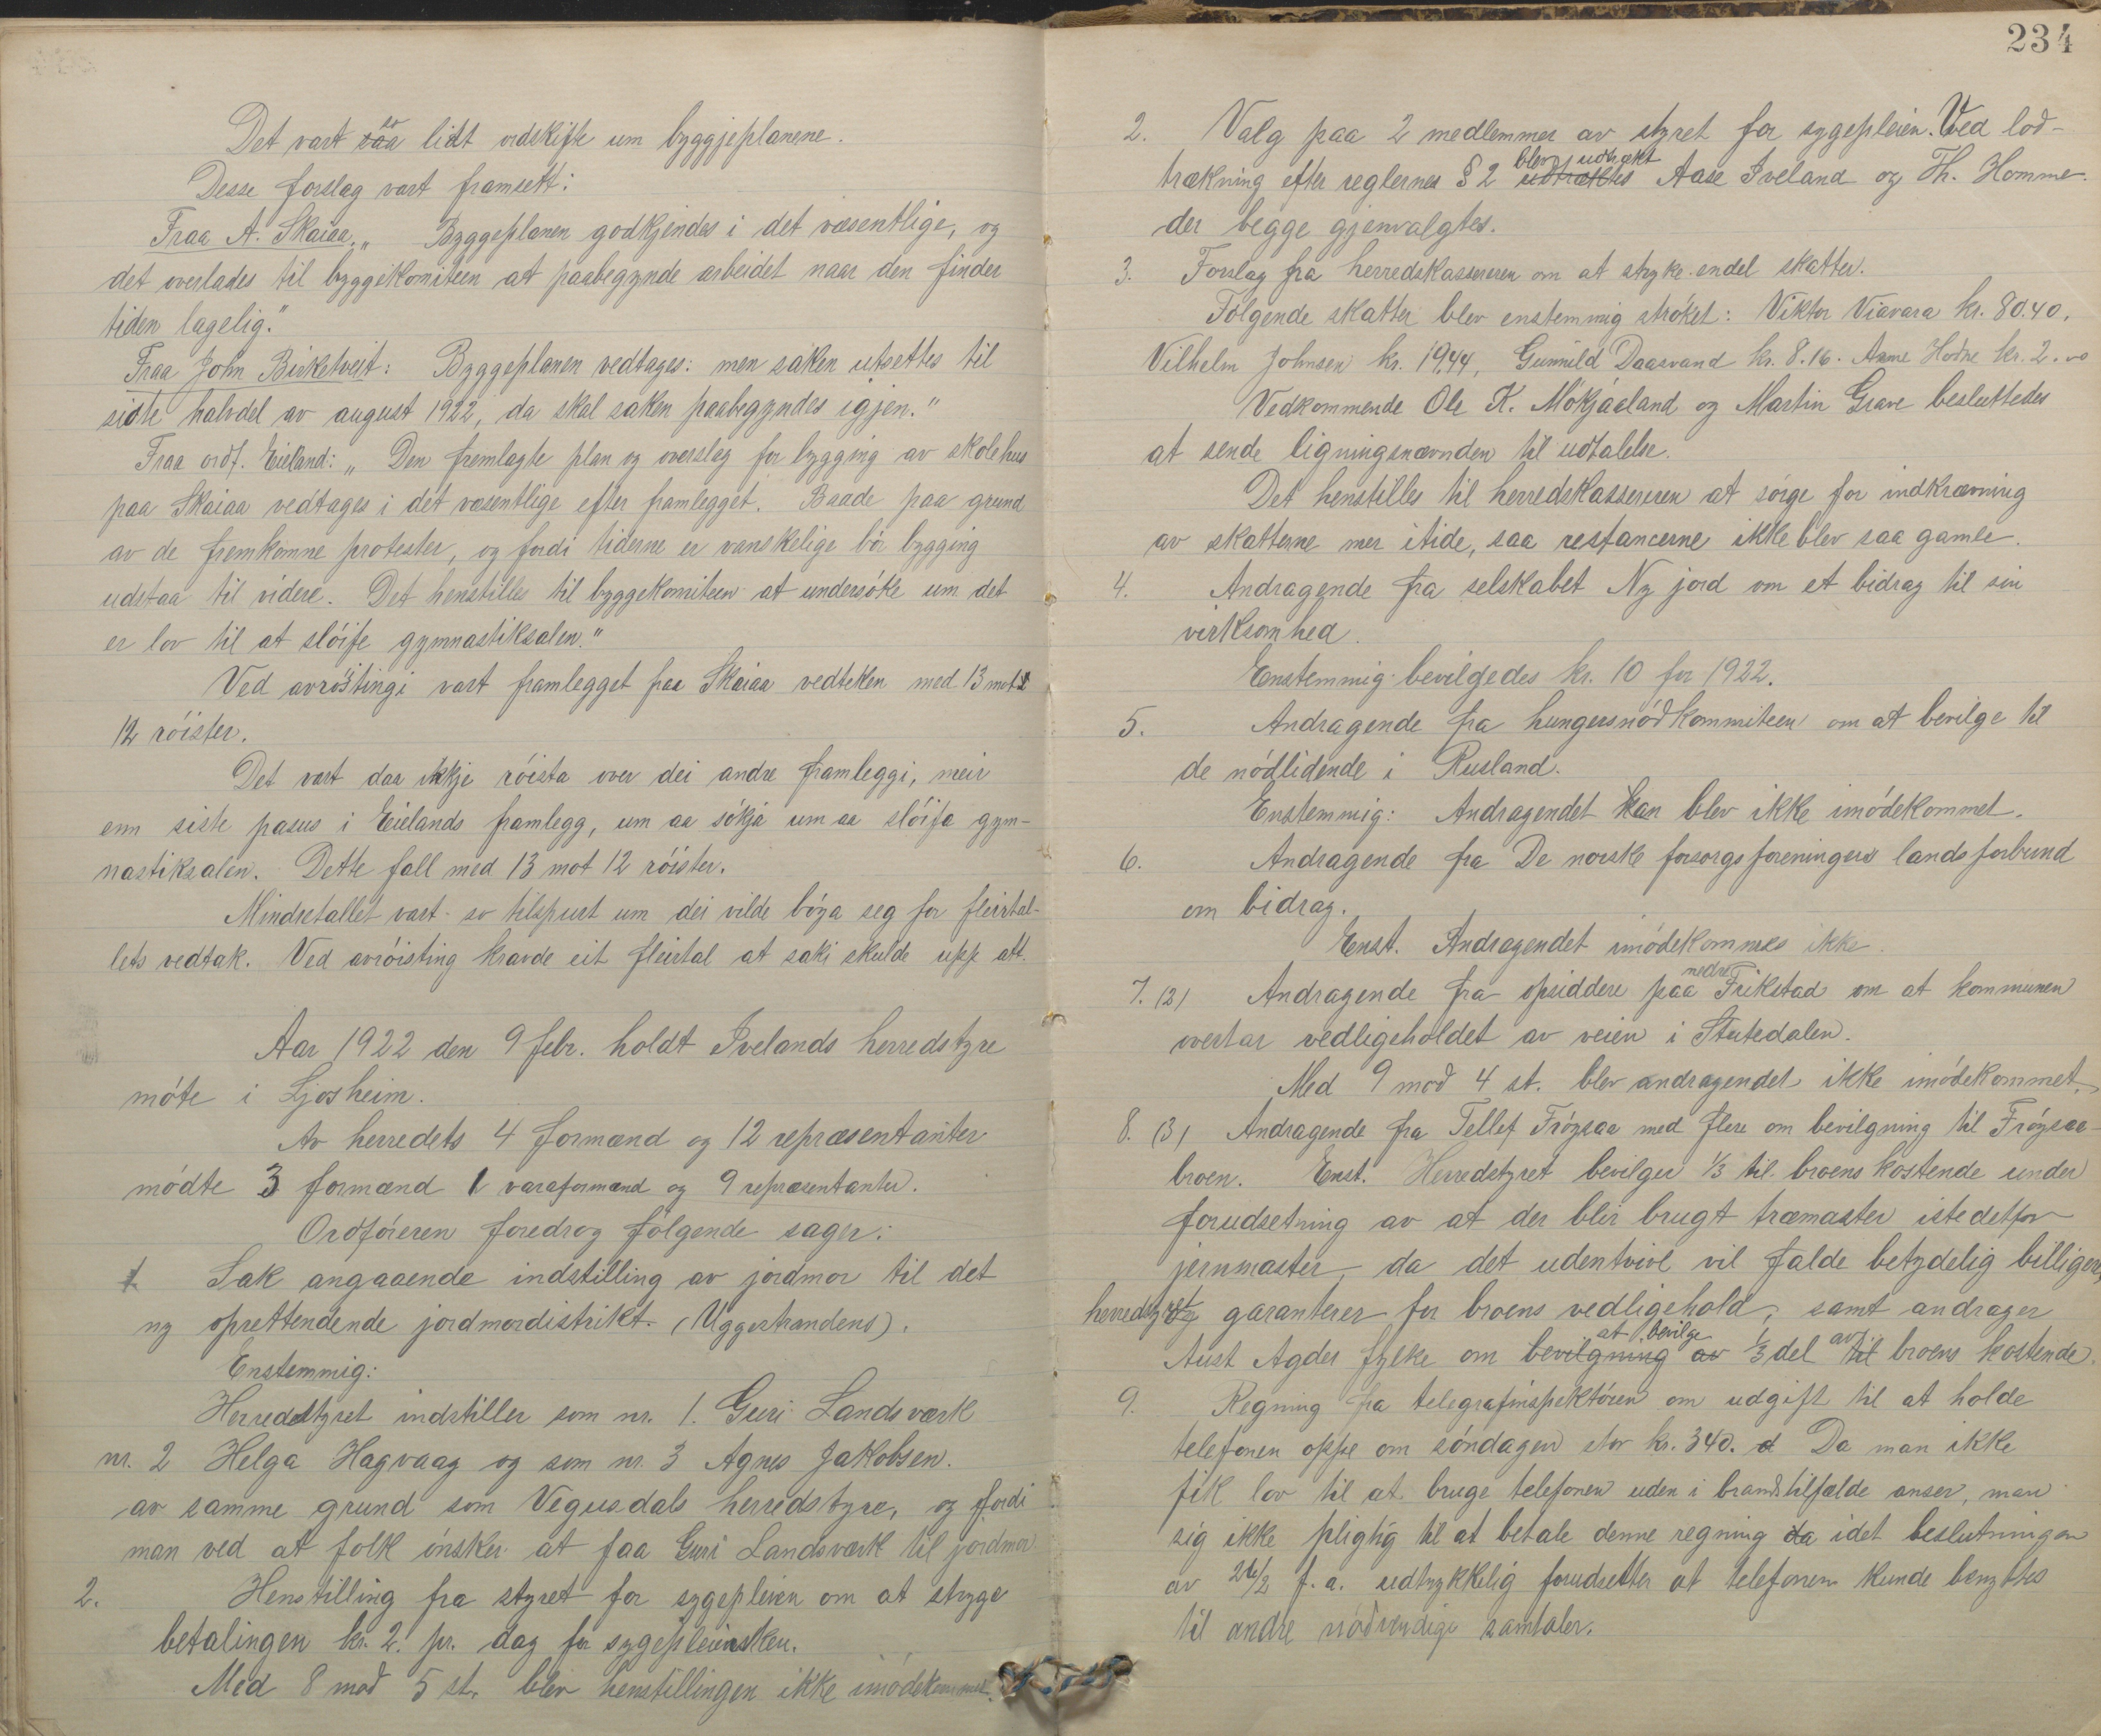 Det vart so lidt ordskifte um byggjeplanene.
Desse forslag vart framsett:
Fraa A. Skaiaa „ Byggeplanen godkjendes i det væsentlige, og
det overlades til byggekomiteen at paabegynde arbeidet naar den finder
tiden lagelig."
Fraa John Birketveit: Byggeplanen vedtages: men saken utsettes til
sidte halvdel av august 1922, da skal saken paabegyndes igjen."
Fraa ordf. Eieland: „ Den fremlagte plan og overslag for bygging av skolehus
paa Skaiaa vedtages i det væsentlige efter framlegget. Baade paa grund
av de fremkomne protester, og fordi tiderne er vanskelige bór bygging
udstaa til videre. Det henstilles til byggekomiteen at undersóke um det
er lov til at slóife gymnastiksalen."
Ved avróistingi vart framlegget fraa Skaiaa vedteken med 13 mot
12 róister.
Det vart daa ikkje róista over dei andre framleggi, meir
enn siste pasus i Eielands framlegg, um aa sókja um aa slóifa gym-
nastiksalen. Dette fall med 13 mot 12 róister.
Mindretallet vart so tilspurt um dei vilde bóya seg for fleirtal-
lets vedtak. Ved avróisting kravde eit fleirtal at saki skulde upp att.
Aar 1922 den 9 febr. holdt Ivelands herredstyre
móte i Ljosheim.
Av herredets 4 formænd og 12 repræsentanter
módte 3 formænd 1 varaformænd og 9 repræsentanter.
Ordfóreren foredrog fólgende sager:
1 Sak angaaende indstilling av jordmor til det
ny oprettendende jordmordistrikt. (Uggestrandens).
Enstemmig:
Herredstyret indstiller som nr. 1. Guri Landsværk
nr. 2 Helga Hagvaag og som nr. 3 Agnes Jakobsen.
av samme grund som Vegusdals herredstyre, og fordi
man ved at folk ónsker at faa Guri Landsværk til jordmor
2. Henstilling fra styret for sygepleien om at stryge
betalingen kr. 2. pr. dag for sygepleiersken.
Med 8 mod 5 st. blev henstillingen ikke imódekommet.
234
2. Valg paa 2 medlemmer av styret for sygepleien. Ved lod-
trækning efter reglernes § 2 blev udtrækt Aase Iveland og Th. Homme.
der begge gjenvalgtes.
3. Forslag fra herredskassereren om at stryke endel skatter.
Fólgende skatter blev enstemmig stróket: Viktor Viavara kr. 80.40.
Vilhelm Johnsen kr. 19,44, Gunnuld Daasvand kr. 8.16. Anne Hodne kr. 2.00
Vedkommende Ole K. Mókjåland og Martin Grave besluttedes
at sende ligningsnævnden til udtalelse.
Det henstilles til herredskassereren at sórge for indkrævning
av skatterne mer itide, saa restancerne ikke blev saa gamle.
4. Andragende fra selskabet Ny jord om et bidrag til sin
virksomhed.
Enstemmig bevilgedes kr. 10 for 1922.
5. Andragende fra hungersnódkommiteen om at bevilge til
de nódlidende i Rusland.
Enstemmig: Andragendet kan blev ikke imódekommet.
6. Andragende fra De norske forsorgsforeningers landsforbund
om bidrag.
Enst. Andragendet imódekommes ikke.
7. (2) Andragende fra opsiddere paa nedre Frikstad om at kommunen
overtar vedligeholdet av veien i Stutedalen.
Med 9 mod 4 st. blev andragendet ikke imódekommet.
8. (3) Andragende fra Tellef Fróysaa med flere om bevilgning til Fróysaa-
broen. Enst. Herredstyret bevilger 1/3 til broens kostende under
forudsetning av at der blir brugt træmaster istedetfor
jernmaster, da det udentvivl vil falde betydelig billigere,
herredstyret garanterer for broens vedligehold, samt andrager
Aust Agder fylke om at bevilge 1/3 del av broens kostende.
9. Regning fra telegrafinspektóren om udgift til at holde
telefonen oppe om sóndagen stor kr. 340. Da man ikke
fik lov til at bruge telefonen uden i brandtilfælde anser, man
sig ikke pligtig til at betale denne regning idet beslutningen
av /2 f. a. udtrykkelig forudsetter at telefonen kunde benyttes
til andre nódvendige samtaler.